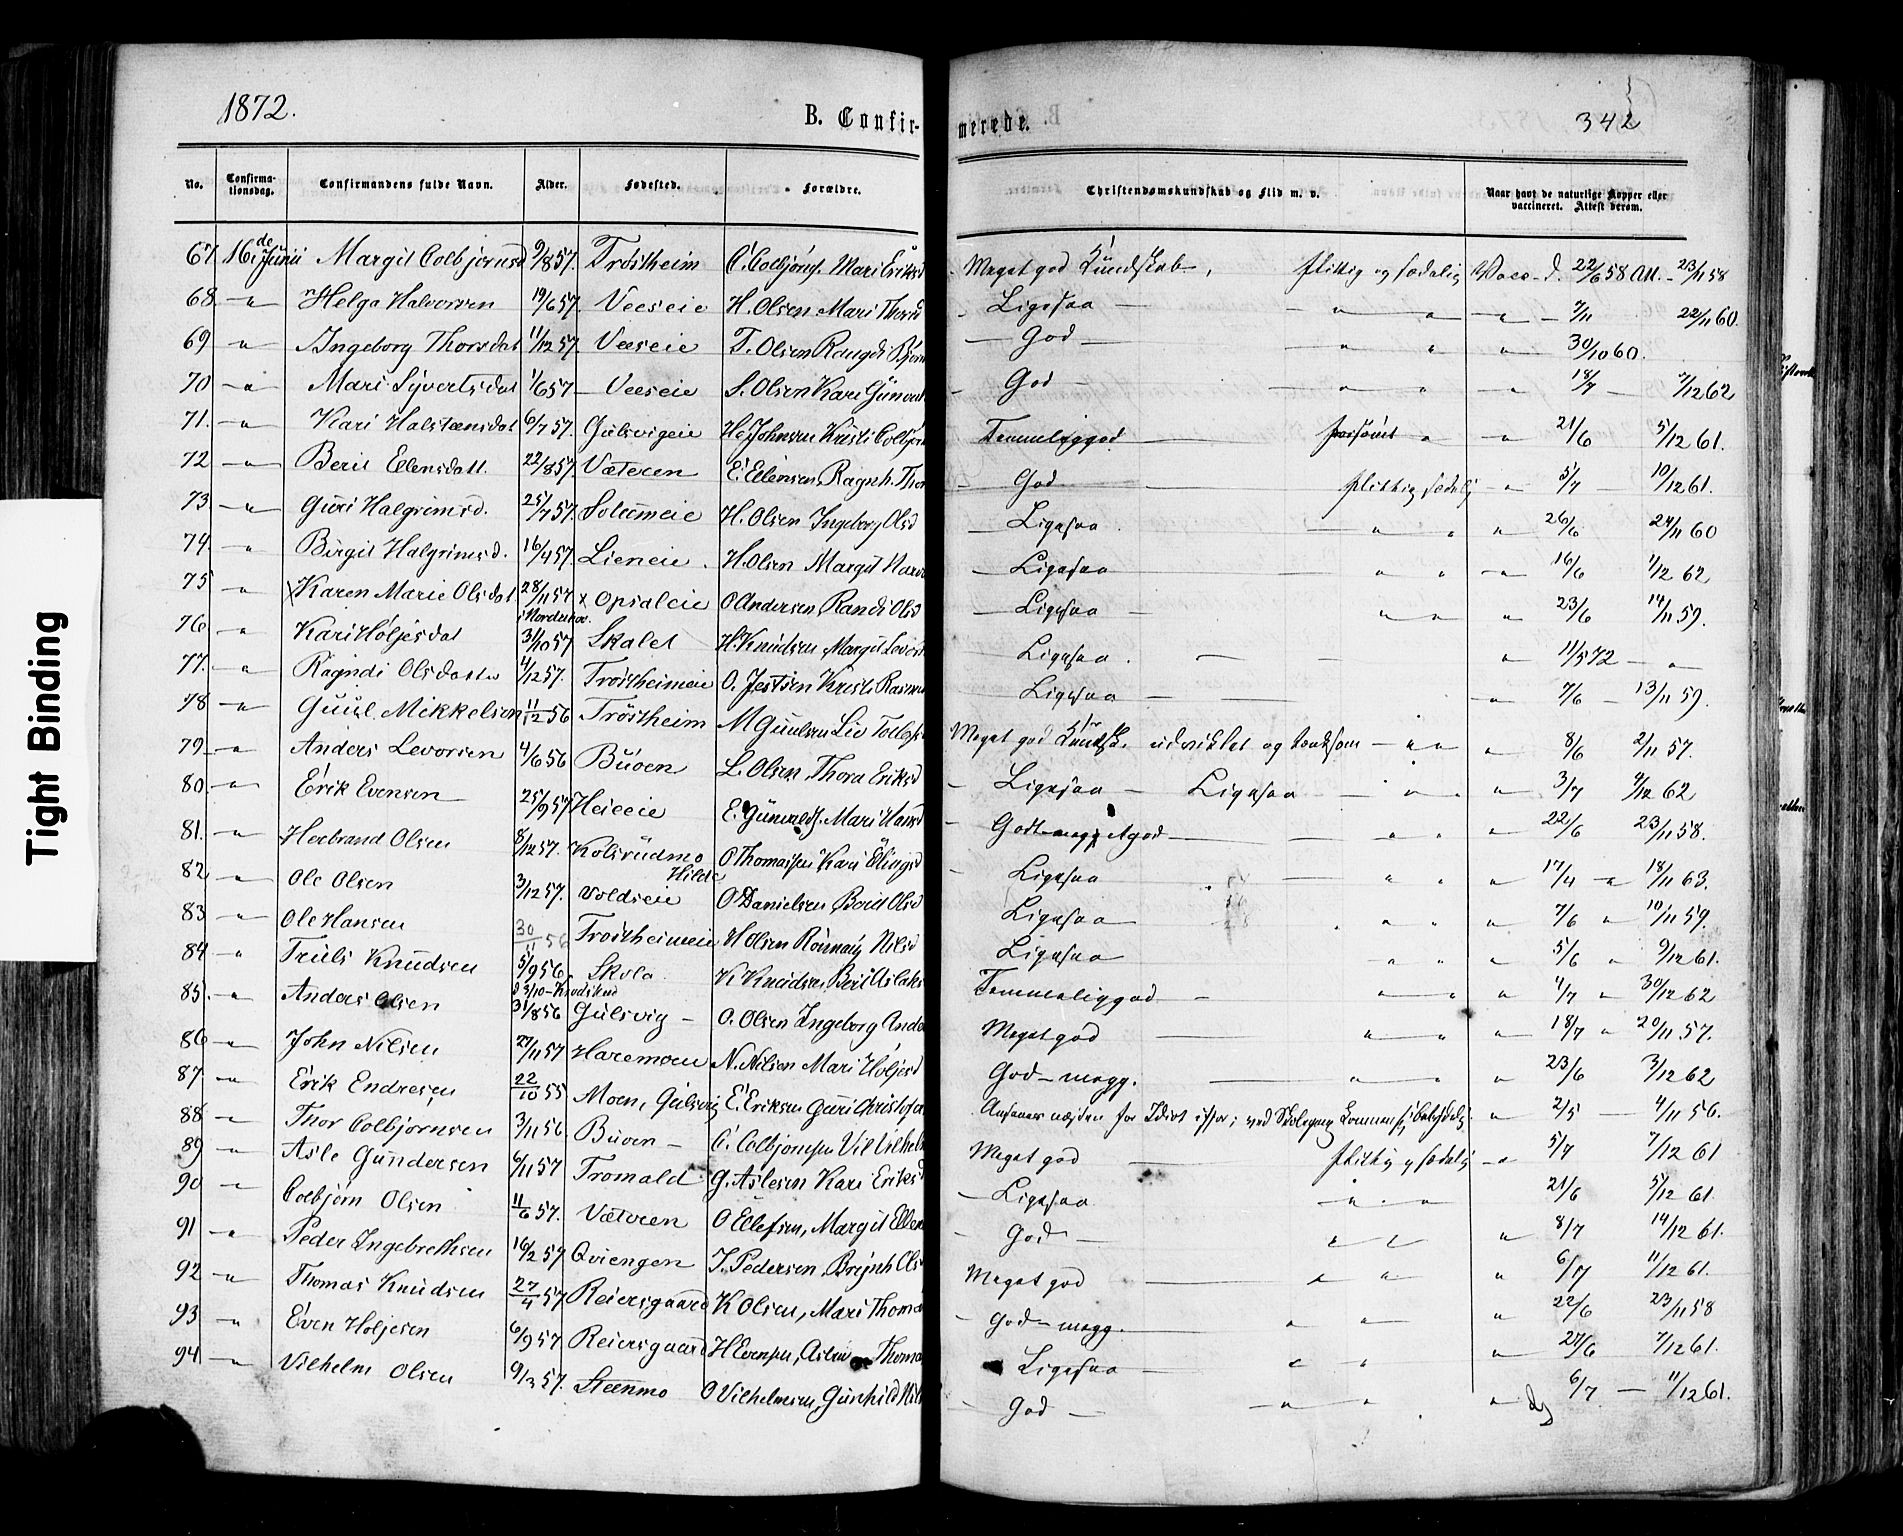 1872.
B. Confir-
merede.
342
No.
Confirma-
tionsdag.
Confirmandens fulde Navn.
Alder.
Fødested.
Forældre.
Christendomskundskab og Flid m. v.
Naar havt de naturlige Kopper eller
vaccineret. Attest derom.
67 16de Junii Margit Colbjørnsd 9/8 57. Trostheim C. Colbjørns. Mari Eriksd Meget god Kundskab, flittig og sædelig Vacc. d. 22/6 58 Att. 23/11 58
68 " Helga Halvorsen 19/6 57. Veeseie H. Olsen Mari Thords Ligesaa " " " 7/11 22/11 60.
69 " Ingeborg Thorsdat 11/12 57 Veeseie T. Olsen Rangdi Bjørn God " " " 30/10 60.
70 " Mari Syvertsdat 1/6 57 Veeseie S. Olsen Kari Gunvol God " " " 18/7 7/12 62
71. " Kari Halsteensdat 6/7 57. Gulsvigeie H. Johnsen Kristi Colbjørn Temmeliggod " " 21/6 5/12 61.
72 " Berit Ellensdatt. 22/8 57. Væteren E. Ellensen, Ragnh. Thor God flittig sædelig " 5/7 10/12 61.
73 " Guri Halgrimsd. 25/7 57. Solumeie H. Olsen Ingeborg Olsd Ligesaa " " " 26/6 24/11 60
74. " Birgit Halgrimsd. 16/4 57. Lieneie H. Olsen Margit Ligesaa " " " 16/6 1/12 62
75 " Karen Marie Olsdat 28/11 57 x Opsaleie O Andersen Randi Olsd Ligesaa " " 23/6 14/11 59.
i Norderhov.
76 " Kari Høljesdat 31/10 57 Skalet H. Knudsen Margit Ligesaa. " 11/5 72 "
77. " Ragndi Olsdatter 4/12 57. Trostheimeie O. Jestsen Kristi Ligesaa " 7/6 13/11 59.
78 " Guul Mikkelsen 11/12 56 Trostheim M Guulsen Liv Meget god Kundsk. udviklet og tænksom " " 8/6 2/11 57.
79 " Anders Levorsen 4/6 56 Buøen L. Olsen, Thora Eriksd Ligesaa Ligesaa " " 3/7 9/12 62
80 " Erik Evensen 25/9 57 Heieeie E. Gunvalds. Mari Hansd Godt megg " " 22/6 23/11 58.
81. " Herbrand Olsen 8/12 57. Kolsrudmo O Thomassen Kari Ligesaa " " " 17/4 " 18/11 63.
82 " Ole Olsen 3/12 57. Hilde voldseie O Danielsen Berit Olsd Ligesaa " " " 7/6 " 10/11 59.
83 " Ole Hansen 30/11 56 Trostheimeie H Olsen Rønnaug Nilsd Ligesaa " " " 5/6 " 9/12 61.
84 " Truls Knudsen 5/9 56 Skola K Knudsen Berit Aslaks Temmeliggod " " " 4/7 " 30/12 62
d 3/10 - Krødsherd
85. " Anders Olsen 31/8 56 Gulsvig O. Olsen Ingeborg Ande Meget god " " " 18/7 " 20/11 57.
86 " John Nilsen 27/11 57 Haremoen N. Nilsen Mari Høljesd God - megg. " " " 23/6 3/12 62
87 " Erik Endresen 22/10 55 Moen, Gulsvig E. Eriksen Guri Christofer Ansaaes næsten for Idiot " 2/5 4/11 56.
88 " Thor Colbjørnsen 3/11 56 Buøen C. Colbjørnsen Vil Vilhelm Meget god flittig og sædelig " 5/7 7/12 61
89 " Asle Gundersen 6/11 57 Tromald G. Aslesen Kari Eriksd Ligesaa " " 21/6 5/12 61.
90 " Colbjørn Olsen 11/6 57. Væteren O Ellefsen, Margit Ellen God " " " 8/7 14/12 61.
91 " Peder Ingebrethsen 16/2 57 Qviengen I. Pedersen Brynh Ols Meget god " " " 6/7 11/12 61.
92 " Thomas Knudsen 27/4 57 Reiersgaard K Olsen, Mari Thomas God - megg. " " " 22/6 23/11 58
93 " Even Høljesen 6/9 57 Reiersgaard H Evensen, Thoma Ligesaa " " " 27/6 7/12 61.
94 " Vilhelm Olsen 9/3 57. Steenmo O Vilhelmsen, Gunhild Nils God " " " 6/7 11/12 61.
Tight Binding